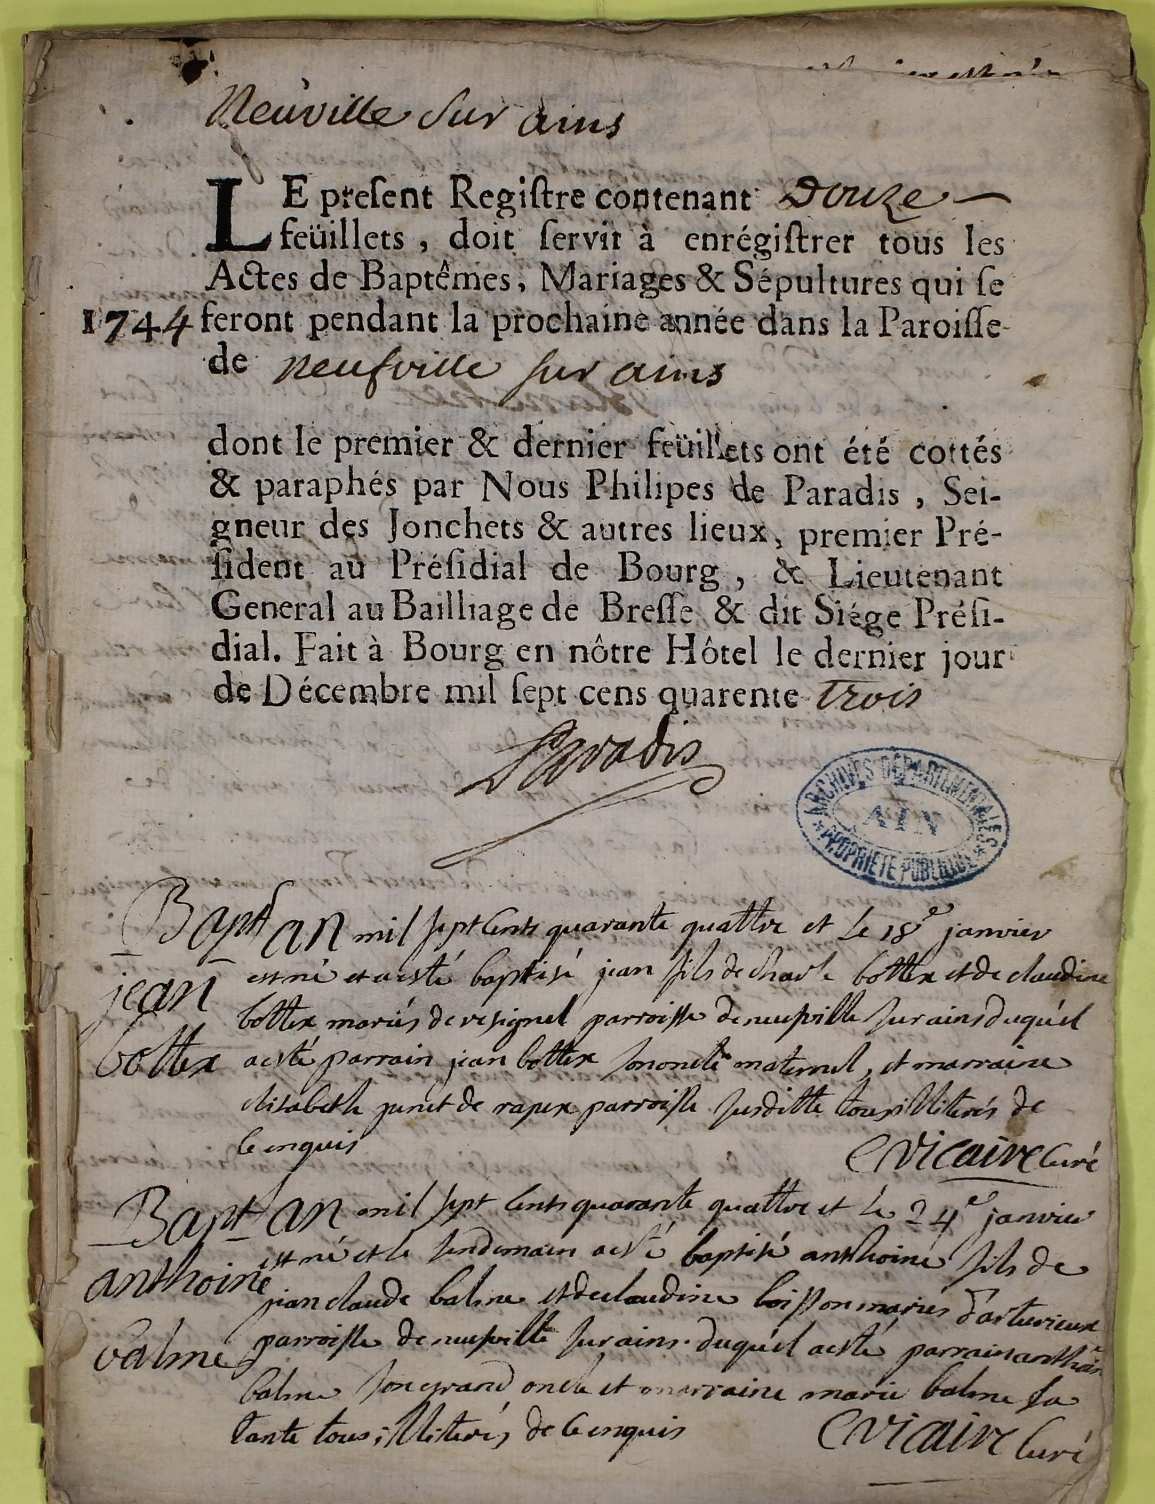 Neuville sur ains
LE preſent Regiſtre contenant Douze
feüillets, doit ſervir à enrégiſtrer tous les
Actes de Baptêmes, Mariages & Sépultures qui ſe
1744 feront pendant la prochaine année dans la Paroiſſe
de neufville sur ains
dont le premier & dernier feüillets ont été cottés
& paraphés par Nous Philipes de Paradis, Sei-
gneur des Jonchets & autres lieux, premier Pré-
ſident au Préſidial de Bourg, & Lieutenant
General au Bailliage de Breſſe & dit Siége Préſi-
dial. Fait à Bourg en nôtre Hôtel le dernier jour
de Décembre mil ſept cens quarente trois
Paradis
ARCHIVES DÉPARTEMENTALES
AIN
PROPRIÉTÉ PUBLIQUE
Bapt
jean
bottex
an mil sept cents quarante quattre et le 18e janvier
est né et a esté baptisé jean fils de charle bottex et de claudine
bottex mariés de resignel parroisse de neufville sur ains duquel
a esté parrain jean bottex son oncle maternel, et marraine
elisabeth junet de rapex parroisse susditte tous illiterés de
ce enquis
Vicaire Curé
Bapt
anthoine
balme
an mil sept cents quarante quattre et le 24e janvier
est né et le lendemain a esté baptisé anthoine fils de
jean claude balme et de claudine boisson mariés d'arturieux
parroisse de neufville sur ains duquel a esté parrain anthoine
balme son grand oncle et marraine marie balme sa
tante tous illiterés de ce enquis
Vicaire Curé